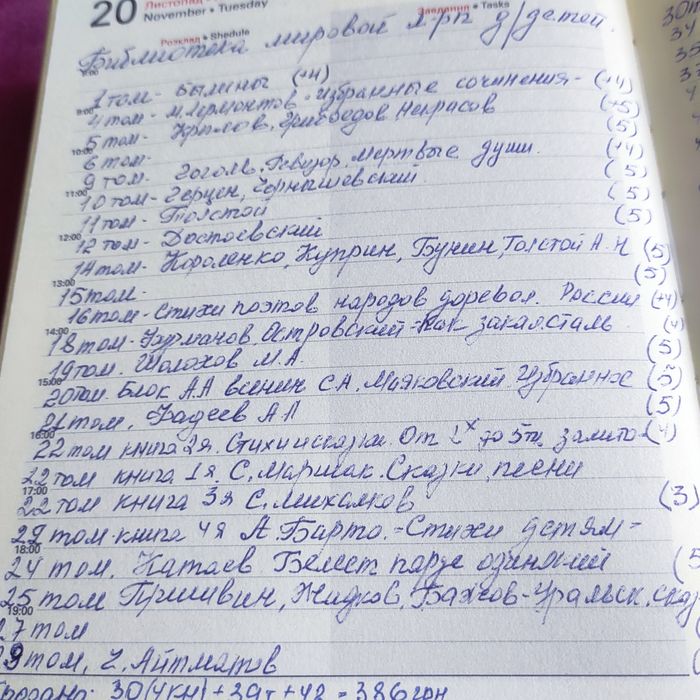 20 Листопад
November • Tuesday
Розклад • Shedule
Завдання • Tasks
Библиотека мировой л-ры д/детей.
8:00
1 том - Былины (+4)
4 том - М.Лермонтов - избранные сочинения - (+4)
9:00
5 том - Крылов, Грибоедов, Некрасов (+5)
6 том - (5)
10:00
9 том - Гоголь, Ревизор, Мертвые души. (+4)
10 том - Герцен, Чернышевский (5)
11:00
11 том - Толстой (5)
12 том - Достоевский (5)
12:00
14 том - Короленко, Куприн, Бунин, Толстой А.Н (5)
15 том - (5)
13:00
16 том - Стихи поэтов народов доревол. России (+4)
18 том - Фурманов, Островский - Как закал. сталь (4)
14:00
19 том. Шолохов М.А (5)
20 том. Блок А.А Есенин С.А. Маяковский Избранное (5)
15:00
21 том. Фадеев А.А (5)
22 том книга 2я. Стихи и сказки От 2х до 5ти (4)
16:00
22 том книга 1я. С. Маршак. Сказки, песни
22 том книга 3я С. Михалков (3)
17:00
22 том книга 4я А. Барто. - Стихи детям -
24 том. Катаев Белеет парус одинокий (5
18:00
25 том Пришвин, Житков, Бажов - Уральск. сказ
27 том
19:00
29 том. Ч. Айтматов
30(4кн) + 29т + 42 = 386грн